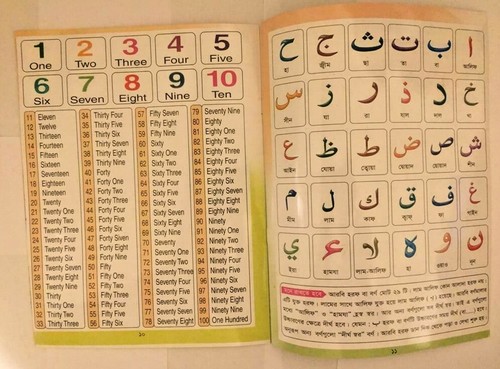 1 2 3 4 5
One Two Three Four Five
6 7 8 9 10
Six Seven Eight Nine Ten
11 Eleven
12 Twelve
13 Thirteen
14 Fourteen
15 Fifteen
16 Sixteen
17 Seventeen
18 Eighteen
19 Nineteen
20 Twenty
21 Twenty One
22 Twenty Two
23 Twenty Three
24 Twenty Four
25 Twenty Five
26 Twenty Six
27 Twenty Seven
28 Twenty Eight
29 Twenty Nine
30 Thirty
31 Thirty One
32 Thirty Two
33 Thirty Three
34 Thirty Four
35 Thirty Five
36 Thirty Six
37 Thirty Seven
38 Thirty Eight
39 Thirty Nine
40 Forty
41 Forty One
42 Forty Two
43 Forty Three
44 Forty Four
45 Forty Five
46 Forty Six
47 Forty Seven
48 Forty Eight
49 Forty Nine
50 Fifty
51 Fifty One
52 Fifty Two
53 Fifty Three
54 Fifty Four
55 Fifty Five
56 Fifty Six
57 Fifty Seven
58 Fifty Eight
59 Fifty Nine
60 Sixty
61 Sixty One
62 Sixty Two
63 Sixty Three
64 Sixty Four
65 Sixty Five
66 Sixty Six
67 Sixty Seven
68 Sixty Eight
69 Sixty Nine
70 Seventy
71 Seventy One
72 Seventy Two
73 Seventy Three
74 Seventy Four
75 Seventy Five
76 Seventy Six
77 Seventy Seven
78 Seventy Eight
79 Seventy Nine
80 Eighty
81 Eighty One
82 Eighty Two
83 Eighty Three
84 Eighty Four
85 Eighty Five
86 Eighty Six
87 Eighty Seven
88 Eighty Eight
89 Eighty Nine
90 Ninety
91 Ninety One
92 Ninety Two
93 Ninety Three
94 Ninety Four
95 Ninety Five
96 Ninety Six
97 Ninety Seven
98 Ninety Eight
99 Ninety Nine
100 One Hundred
১০
ا ب ت ث ج ح
হা জ্বীম ছা তা বা আলিফ
خ د ذ ر ز س
সীন যা রা যাল দাল খা
ش ص ض ط ظ ع
আইন যোয়া ত্বোয়া দোয়াদ ছোয়াদ শীন
غ ف ق ك ل م
মীম লাম কাফ ক্বাফ ফা গাইন
ن و ه لا ء ي
ইয়া হামযা লাম-আলিফ হা ওয়াও নূন
১১